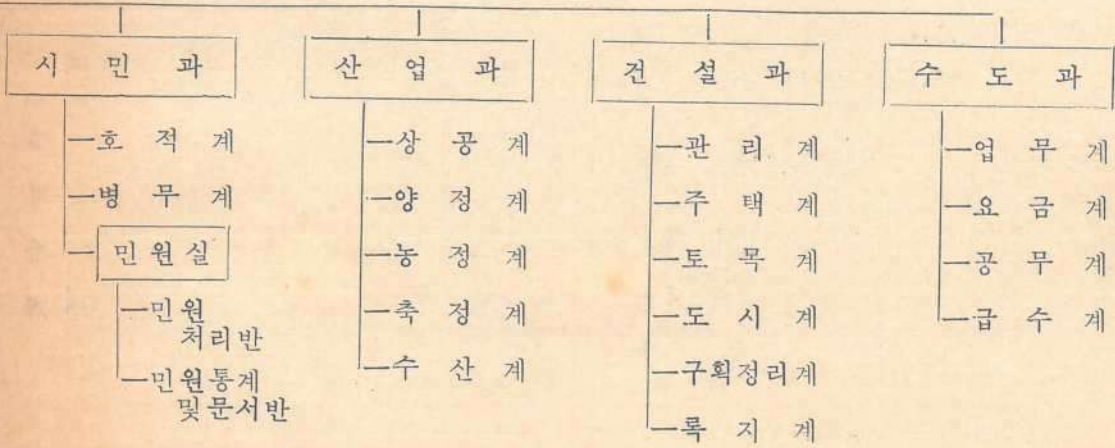 시 민 과
호 적 계
병 무 계
민 원 실
민 원
처 리 반
민 원 통 계
및 문 서 반
산 업 과
상 공 계
양 정 계
농 정 계
축 정 계
수 산 계
건 설 과
관 리 계
주 택 계
토 목 계
도 시 계
구획정리계
록 지 계
수 도 과
업 무 계
요 금 계
공 무 계
급 수 계